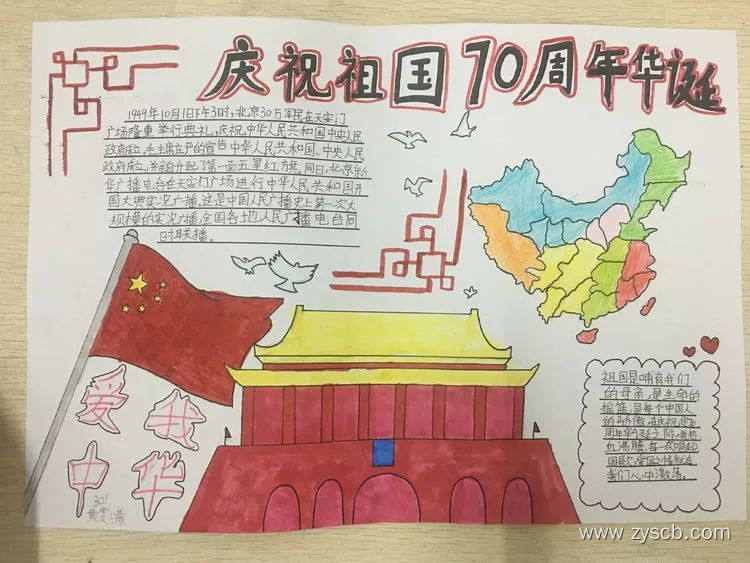 庆祝祖国70周年华诞
1949年10月1日下午3时,北京30万军民在天安门
广场隆重举行典礼,庆祝中华人民共和国中央人民
政府成立,毛主席庄严的宣告中华人民共和国、中央人民
政府成立,并亲自升起了第一面五星红旗。同日,北京新
华广播电台在天安门广场进行中华人民共和国开
国大典实况广播。这是中国人民广播史上第一次大
规模的实况广播,全国各地人民广播电台同
时联播。
爱我
中华
301
黄雯
祖国是哺育我们
的母亲,是生命的
摇篮,是每个中国人
的骄傲,在庆祝
周年华诞之际,我热
血沸腾,每一次唱起
国歌,爱国之情就在
我们心中激荡。
www.zyscb.com